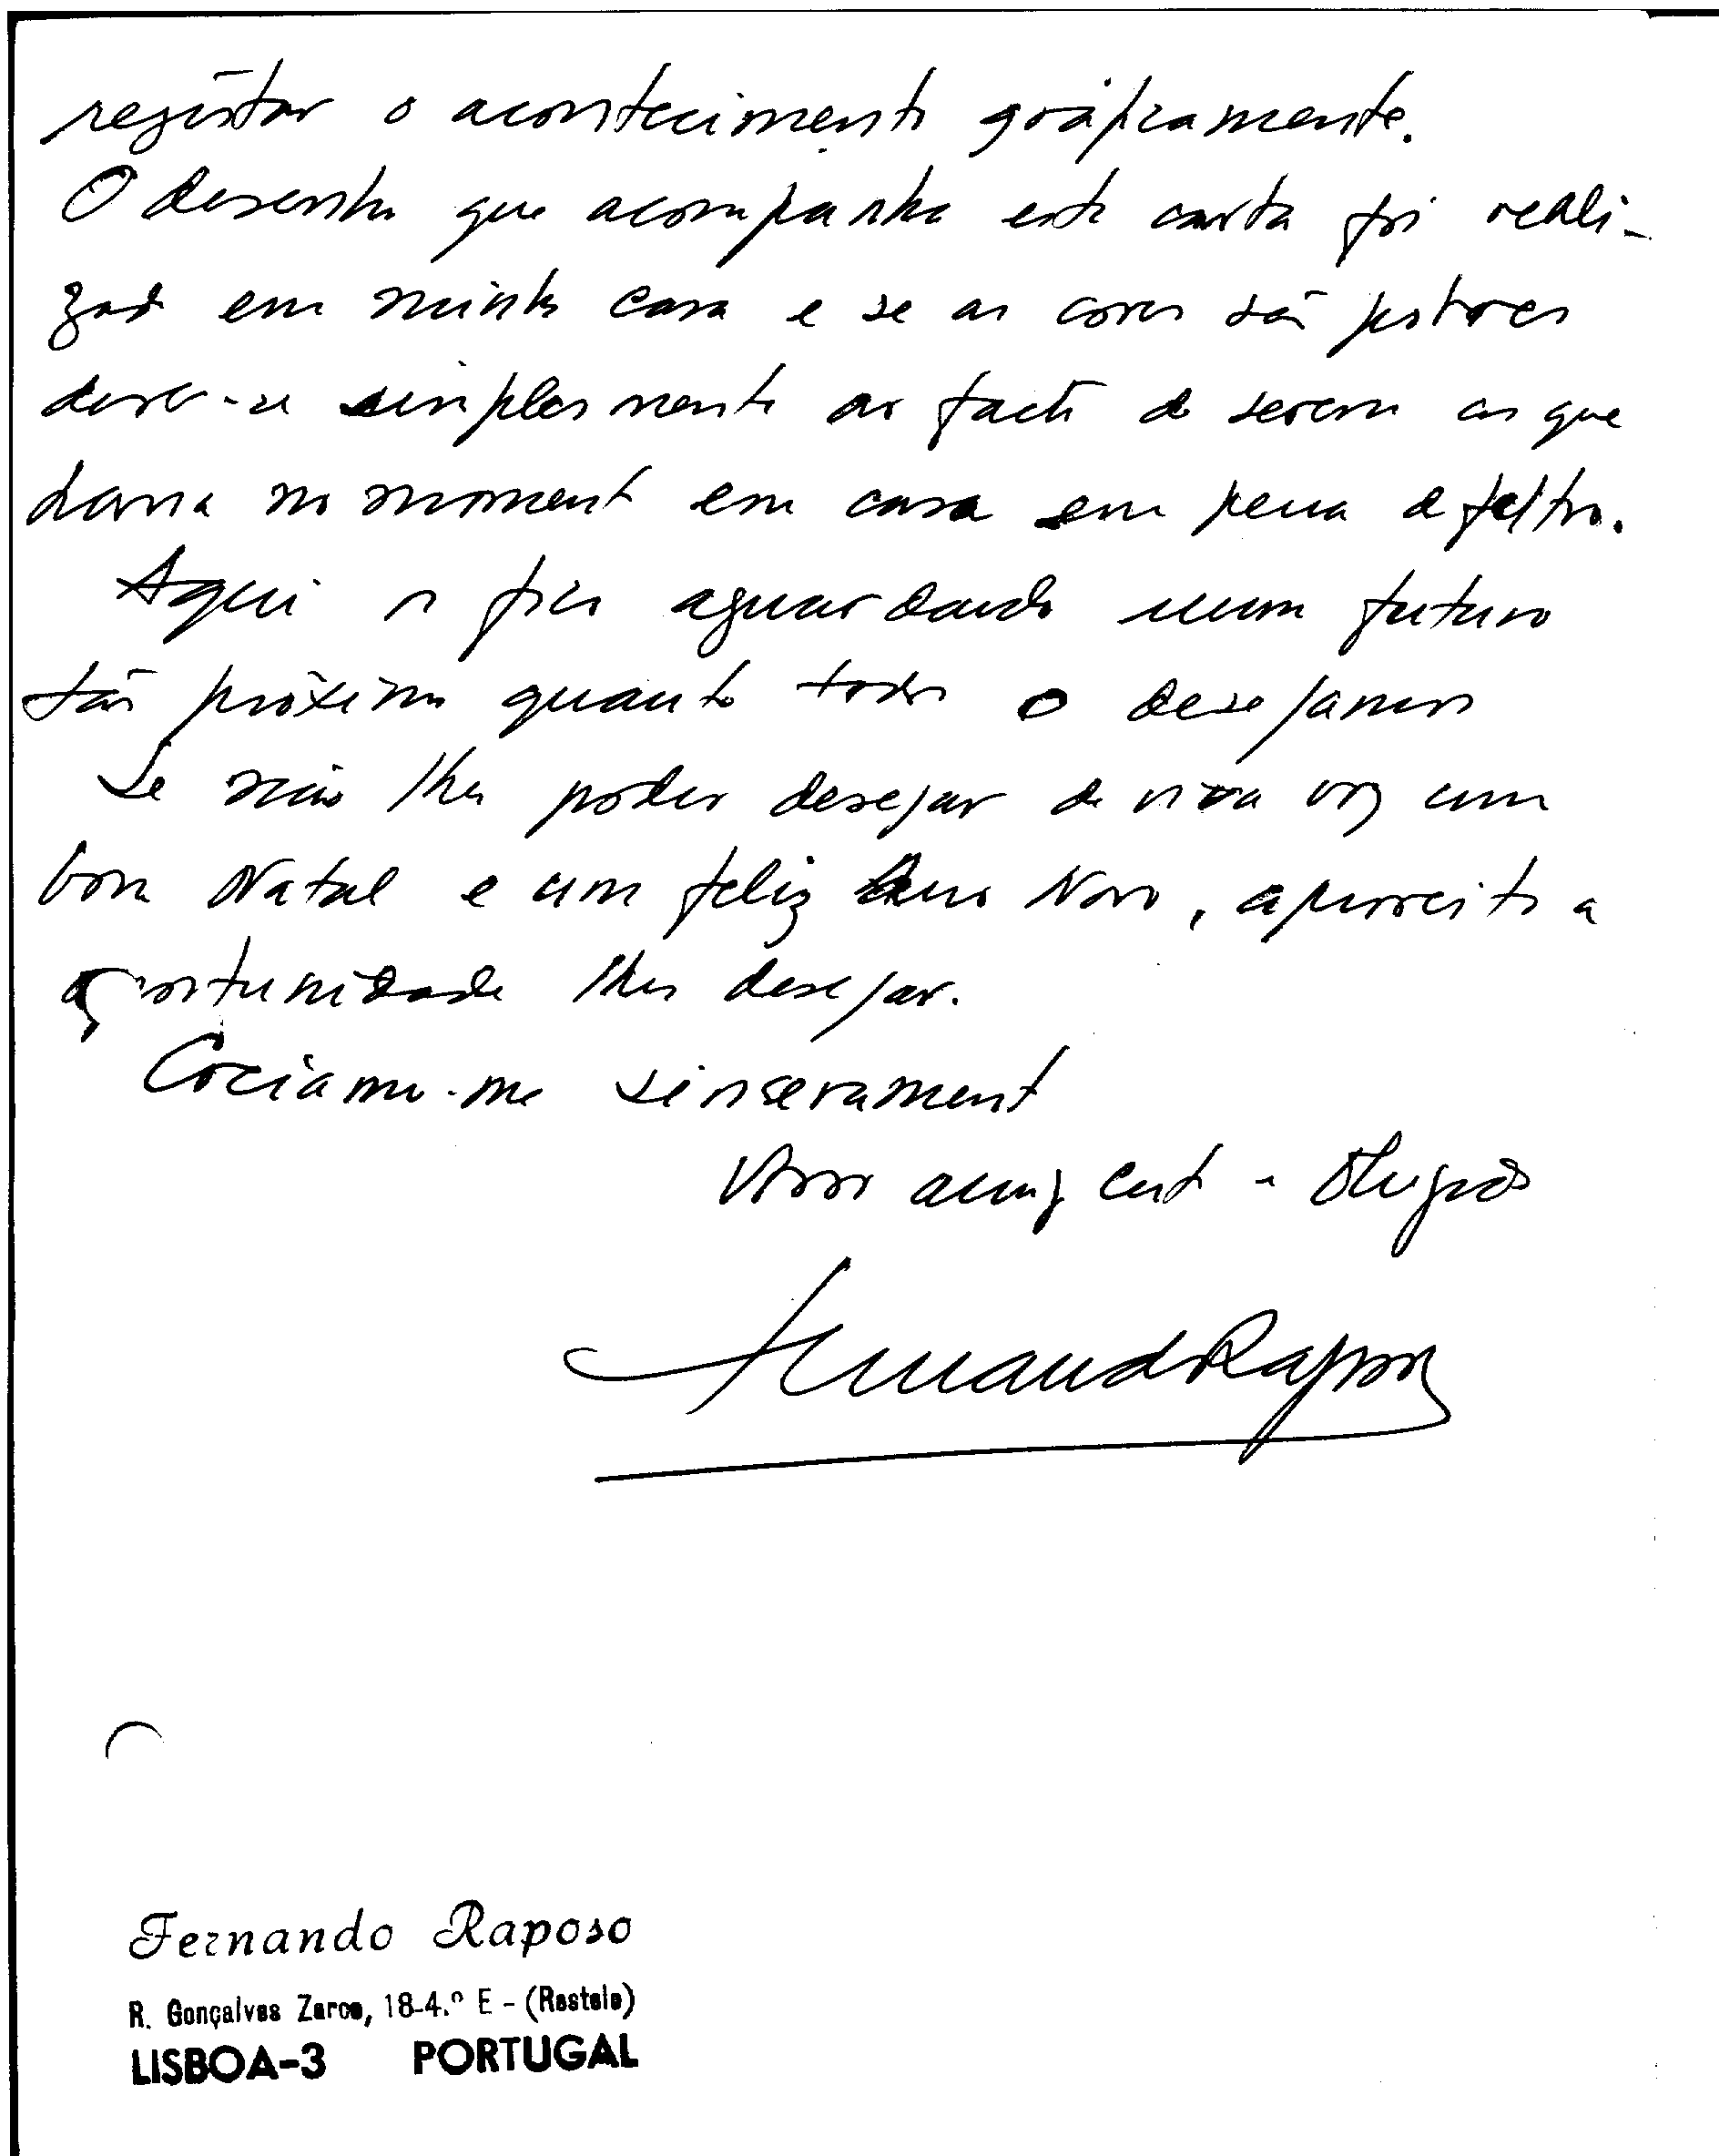 registar o acontecimento gráficamente.
O desenho que acompanha esta carta foi reali-
zado em minha casa e se as cores são pobres
deve-se simplesmente ao facto de serem as que
havia no momento em casa em pena de feltro.
Aqui os fico aguardando num futuro
tão próximo quanto todos o desejamos
Se não lhes poder desejar de viva voz um
bom Natal e um feliz Ano Novo, aproveito a
oportunidade lhes desejar.
Creiam-me sinseramente
Vosso amigo certo e Obrigado
Fernando Raposo
Fernando Raposo
R. Gonçalves Zarco, 18-4.º E - (Restelo)
LISBOA-3 PORTUGAL